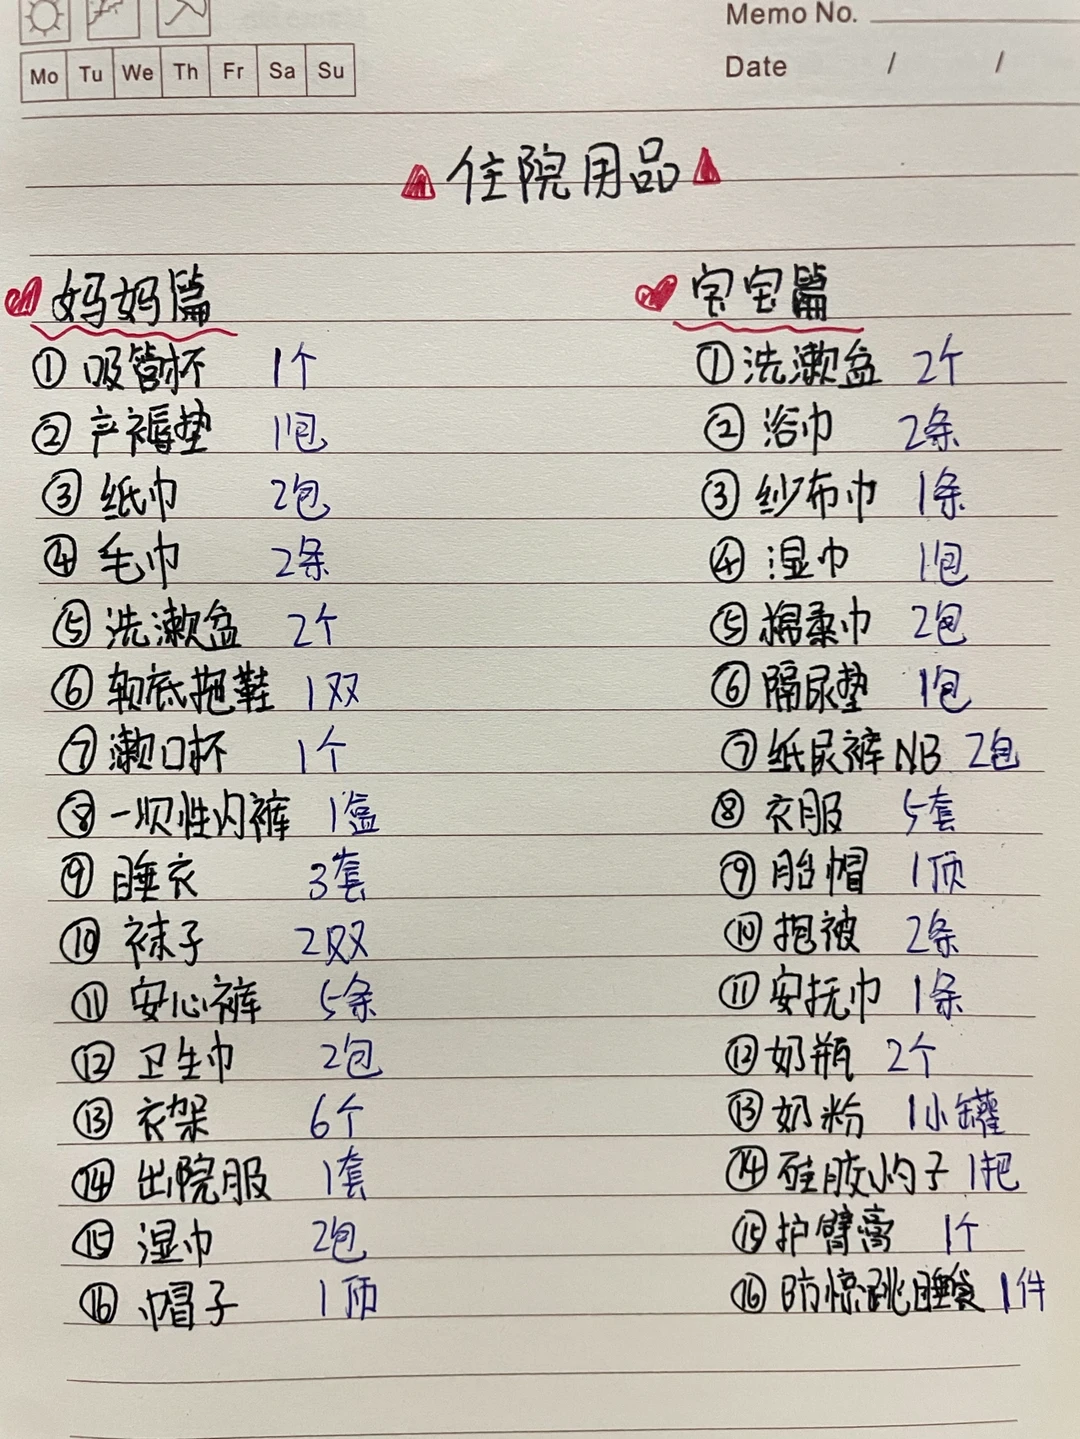 Memo No.
Mo Tu We Th Fr Sa Su
Date / /
住院用品
妈妈篇
①吸管杯 1个
②产褥垫 1包
③纸巾 2包
④毛巾 2条
⑤洗漱盆 2个
⑥软底拖鞋 1双
⑦漱口杯 1个
⑧一次性内裤 1盒
⑨睡衣 3套
⑩袜子 2双
⑪安心裤 5条
⑫卫生巾 2包
⑬衣架 6个
⑭出院服 1套
⑮湿巾 2包
⑯帽子 1顶
宝宝篇
①洗漱盆 2个
②浴巾 2条
③纱布巾 1条
④湿巾 1包
⑤棉柔巾 2包
⑥隔尿垫 1包
⑦纸尿裤NB 2包
⑧衣服 5套
⑨胎帽 1顶
⑩抱被 2条
⑪安抚巾 1条
⑫奶瓶 2个
⑬奶粉 1小罐
⑭硅胶小勺子 1把
⑮护臂膏 1个
⑯防惊跳睡袋 1件